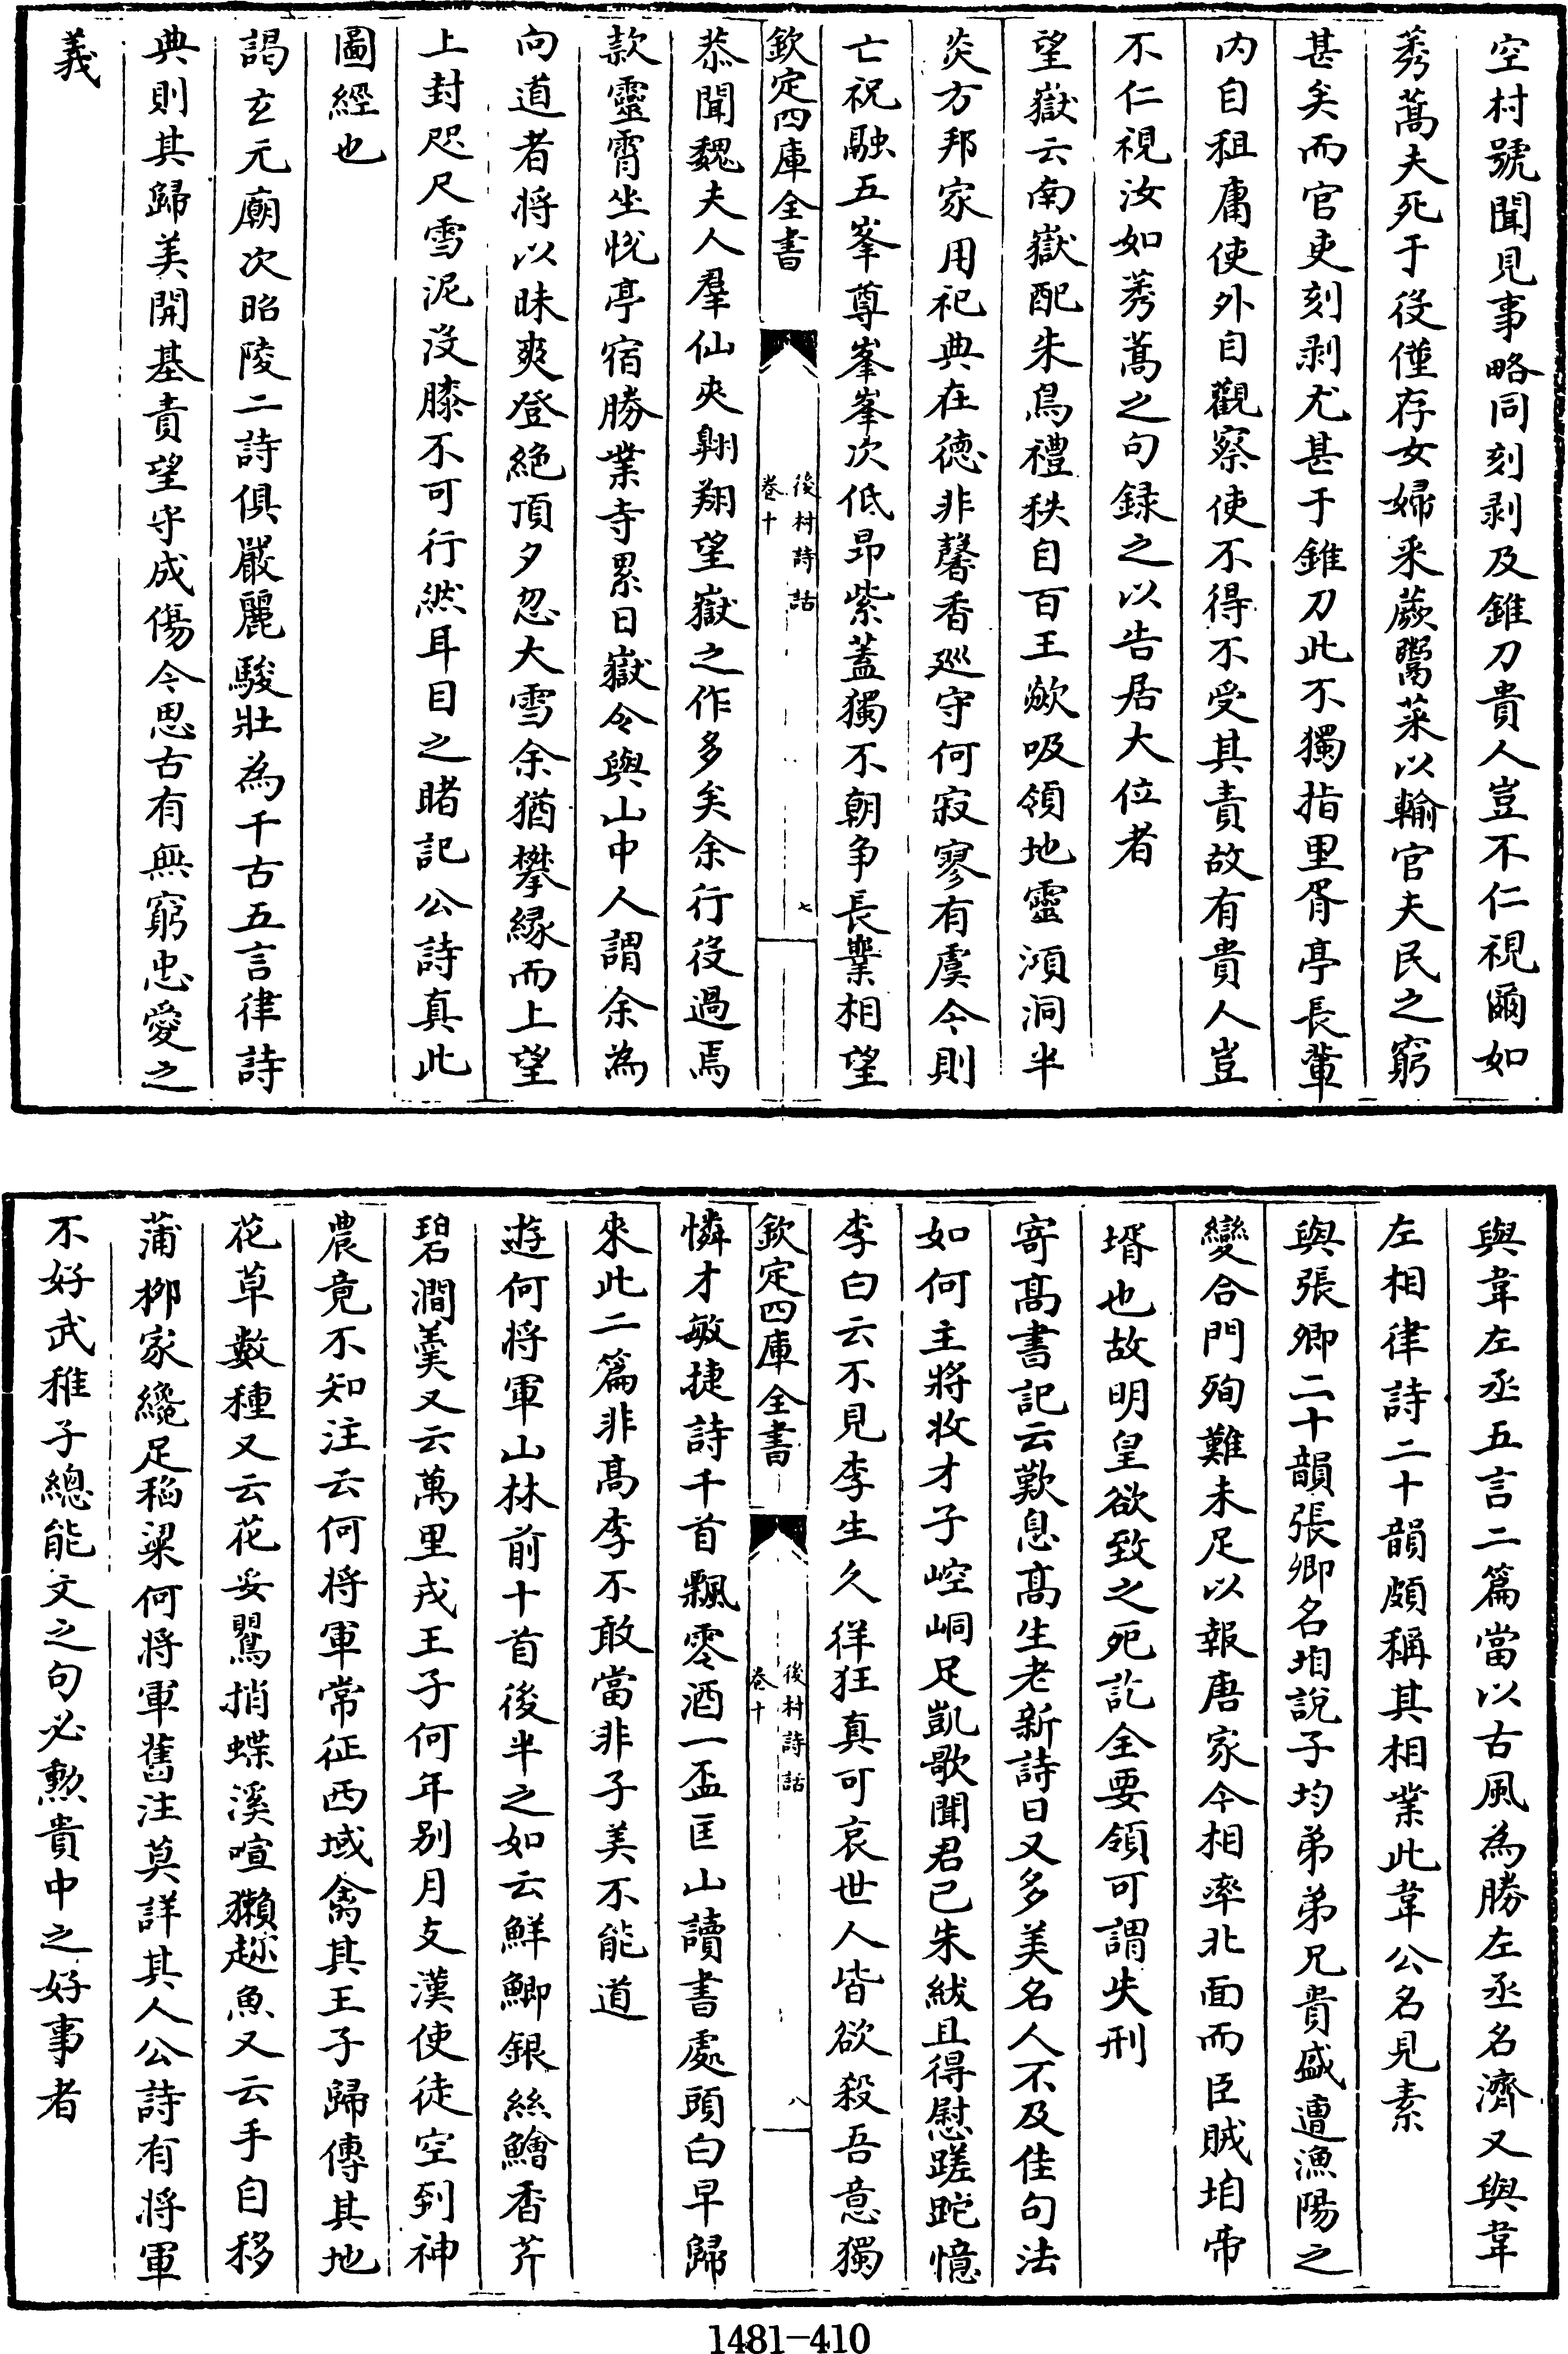 空村號聞見事略同刻剥及錐刀貴人豈不仁視爾如
莠蒿夫死于役僅存女婦采蕨鬻菜以輸官夫民之窮
甚矣而官吏刻剥尤甚于錐刀此不獨指里胥亭長輩
内自租庸使外自觀察使不得不受其責故有貴人豈
不仁視汝如莠蒿之句録之以告居大位者
望嶽云南嶽配朱鳥禮秩自百王歘吸領地靈澒洞半
炎方邦家用祀典在德非馨香廵守何寂寥有虞今則
亡祝融五峯尊峯峯次低昻紫蓋獨不朝争長嶪相望
欽定四庫全書
後村詩話
卷十
七
恭聞魏夫人羣仙夾翺翔望嶽之作多矣余行役過焉
款靈霄坐恍亭宿勝業寺累日嶽令與山中人謂余為
向道者將以昧爽登絶頂夕忽大雪余猶攀縁而上望
上封咫尺雪泥没膝不可行然耳目之睹記公詩真此
圖經也
謁玄元廟次昭陵二詩俱嚴麗駿壯為千古五言律詩
典則其歸美開基責望守成傷今思古有無窮忠愛之
義
與韋左丞五言二篇當以古風為勝左丞名濟又與韋
左相律詩二十韻頗稱其相業此韋公名見素
與張卿二十韻張卿名垍說子均弟弟兄貴盛遭漁陽之
變合門殉難未足以報唐家今相率北面而臣賊垍帝
壻也故明皇欲致之死訖全要領可謂失刑
寄髙書記云歎息髙生老新詩日又多美名人不及佳句法
如何主將收才子崆峒足凱歌聞君已朱紱且得慰蹉跎憶
李白云不見李生久佯狂真可哀世人皆欲殺吾意獨
欽定四庫全書
後村詩話
卷十
八
憐才敏捷詩千首飄零酒一盃匡山讀書處頭白早歸
來此二篇非髙李不敢當非子美不能道
遊何將軍山林前十首後半之如云鮮鯽銀絲鱠香芹
碧澗羮又云萬里戎王子何年别月支漢使徒空到神
農竟不知注云何將軍常征西域禽其王子歸傳其地
花草數種又云花妥鸎捎蝶溪喧獺趂魚又云手自移
蒲栁家纔足稻粱何將軍舊注莫詳其人公詩有將軍
不好武稚子總能文之句必勲貴中之好事者
1481-410